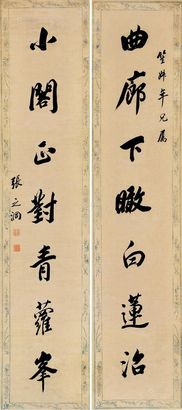 曲廊下瞰白蓮沼
年兄屬
小閣正對青蘿峯
張之洞